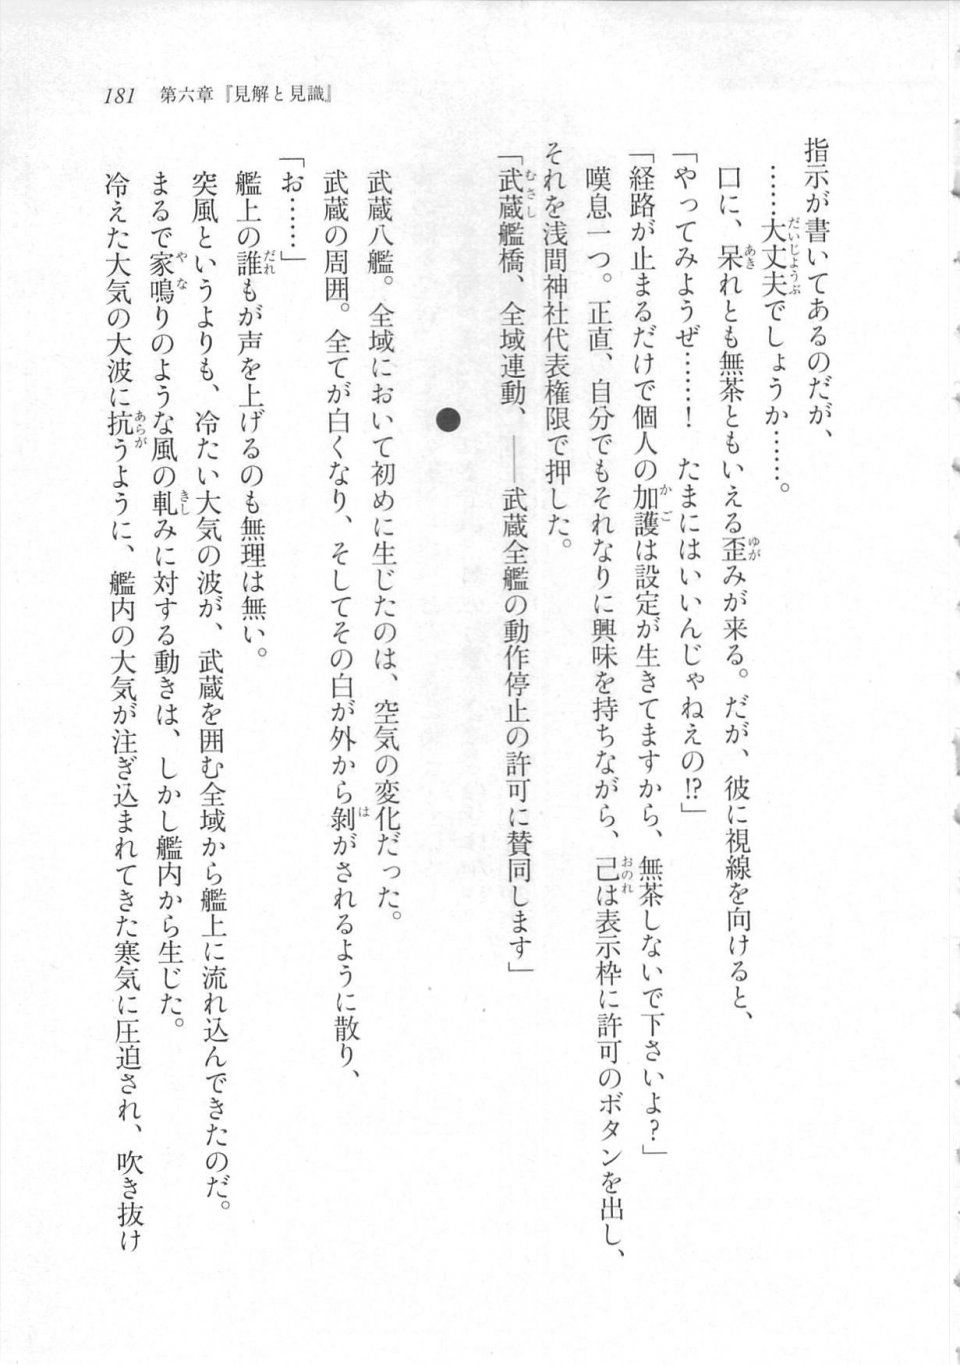 181 第六章『見解と見識』
指示が書いてあるのだが、
……大丈夫でしょうか……。
口に、呆れとも無茶ともいえる歪みが来る。だが、彼に視線を向けると、
「やってみようぜ……！　たまにはいいんじゃねえの!?」
「経路が止まるだけで個人の加護は設定が生きてますから、無茶しないで下さいよ？」
嘆息一つ。正直、自分でもそれなりに興味を持ちながら、己は表示枠に許可のボタンを出し、
それを浅間神社代表権限で押した。
「武蔵艦橋、全域連動、――武蔵全艦の動作停止の許可に賛同します」
●
武蔵八艦。全域において初めに生じたのは、空気の変化だった。
武蔵の周囲。全てが白くなり、そしてその白が外から剝がされるように散り、
「お……」
艦上の誰もが声を上げるのも無理は無い。
突風というよりも、冷たい大気の波が、武蔵を囲む全域から艦上に流れ込んできたのだ。
まるで家鳴りのような風の軋みに対する動きは、しかし艦内から生じた。
冷えた大気の大波に抗うように、艦内の大気が注ぎ込まれてきた寒気に圧迫され、吹き抜け